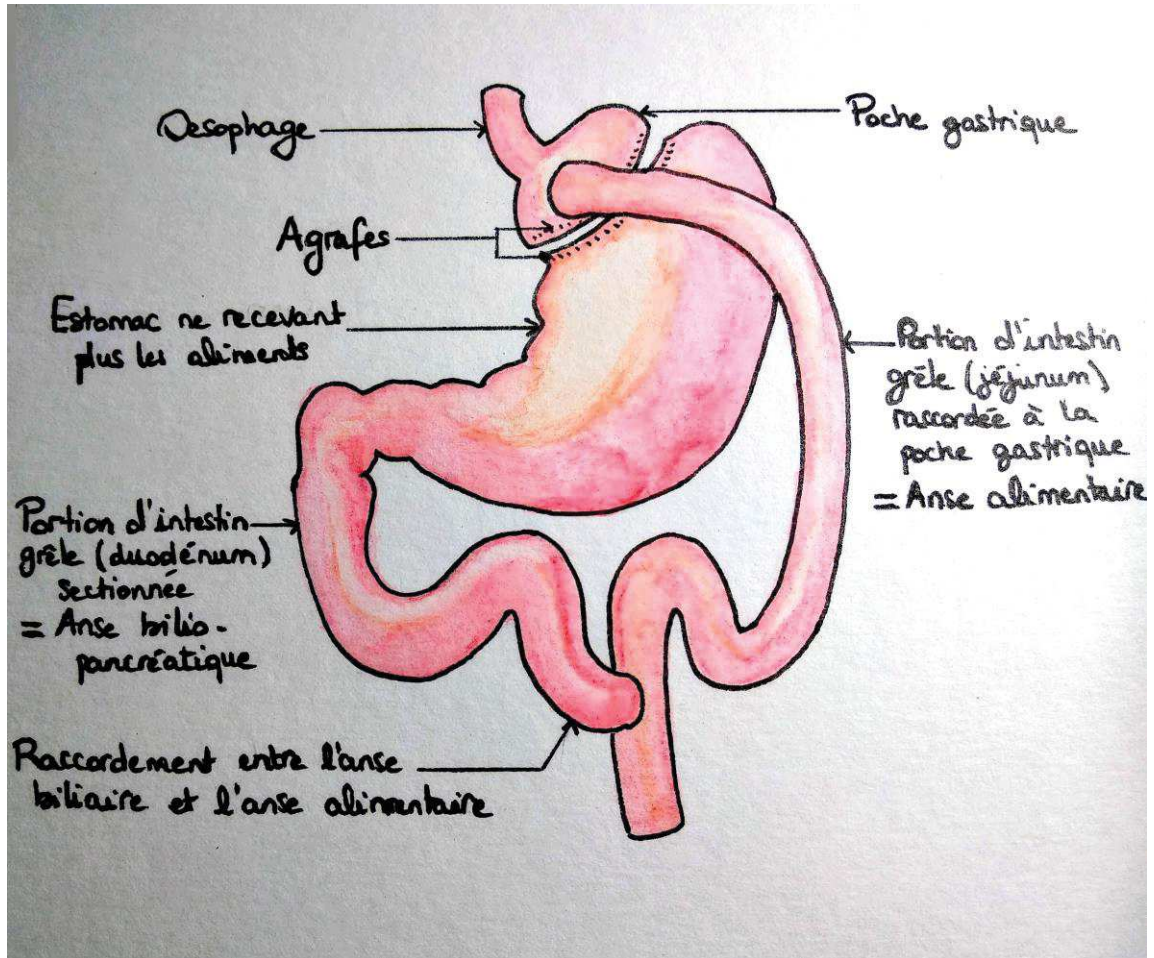 Oesophage
Poche gastrique
Agrafes
Estomac ne recevant
plus les aliments
Portion d'intestin
grêle (jéjunum)
raccordée à la
poche gastrique
= Anse alimentaire
Portion d'intestin
grêle (duodénum)
sectionnée
= Anse bilio-
pancréatique
Raccordement entre l'anse
biliaire et l'anse alimentaire